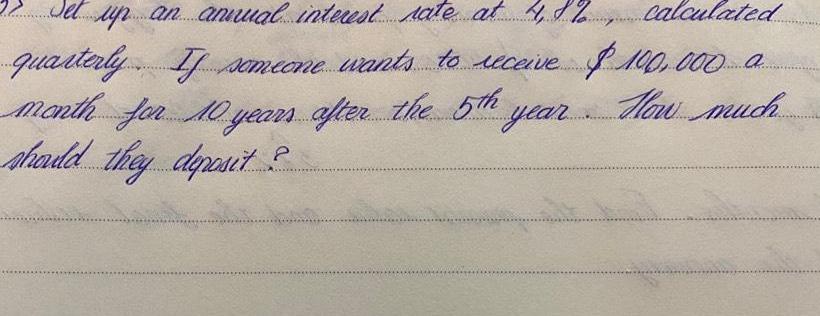 Set up an annual interest rate at 4,8%, calculated
quarterly. If someone wants to receive $ 100,000 a
month for 10 years after the 5th year. How much
should they deposit?